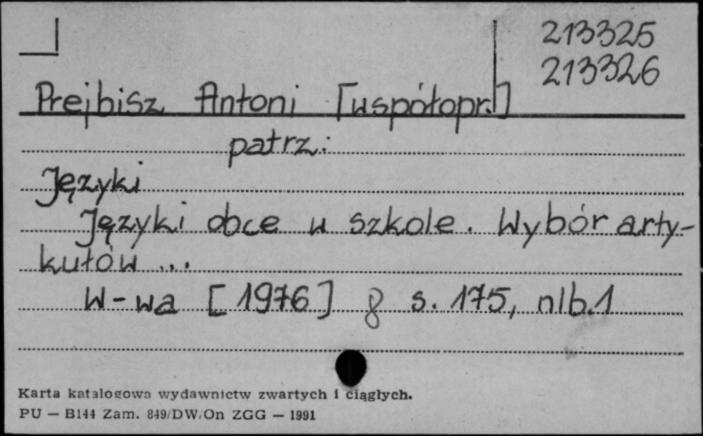 213325
213326
Prejbisz Antoni [współopr.]
patrz:
Języki
Języki obce w szkole. Wybór arty-
kułów ...
W-wa [1976] 8 s. 175, nlb.1
Karta katalogowa wydawnictw zwartych i ciągłych.
PU — B144 Zam. 849/DW/On ZGG — 1991